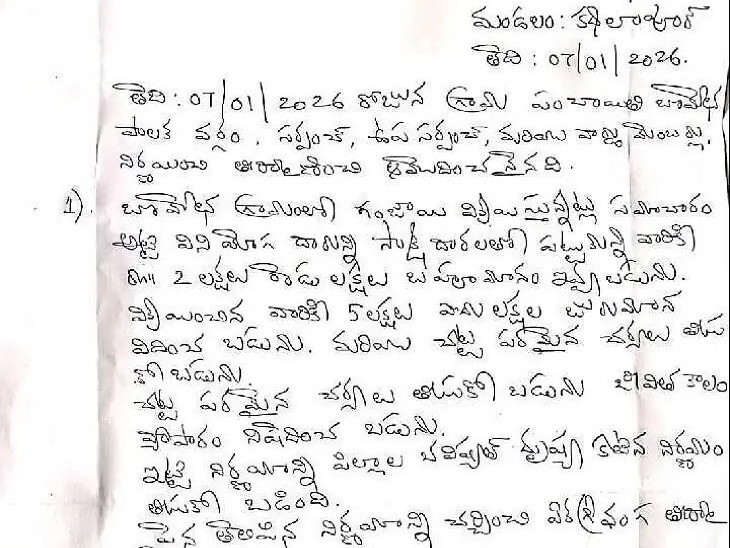 మండలం: కథలాపూర్
తేది: 07/01/2026.
తేది: 07/01/2026 రోజున గ్రామ పంచాయితి
పాలక వర్గం, సర్పంచ్, ఉప సర్పంచ్, మరియు వార్డు మెంబర్లు,
నిర్ణయించి తీర్మాణించి ఆమోదించనైనది.
1). గ్రామంలో గంజాయి విక్రయిస్తున్నట్లు సమాచారం
అట్టి వినియోగ దారున్ని సాక్ష దారలతో పట్టుకున్న వారికి
అక్షరాల 2 లక్షలు రెండు లక్షలు బహుమానం ఇవ్వ బడును.
విక్రయించిన వారికి 5 లక్షలు అయిదు లక్షల జులుమాన
విదించ బడును. మరియు చట్ట పరమైన చర్యలు తీసు
కో బడును.
చట్ట పరమైన చర్యలు తీసుకో బడును జీవిత కాలం
వ్యాపారం నిషేదించ బడును.
ఇట్టి నిర్ణయాన్ని పిల్లల భవిష్యత్ దృష్ట్య కఠిన నిర్ణయం
తీసుకో బడింది.
పైన తెలిపిన నిర్ణయాన్ని చర్చించి ఏకగ్రీవంగ తీర్మా